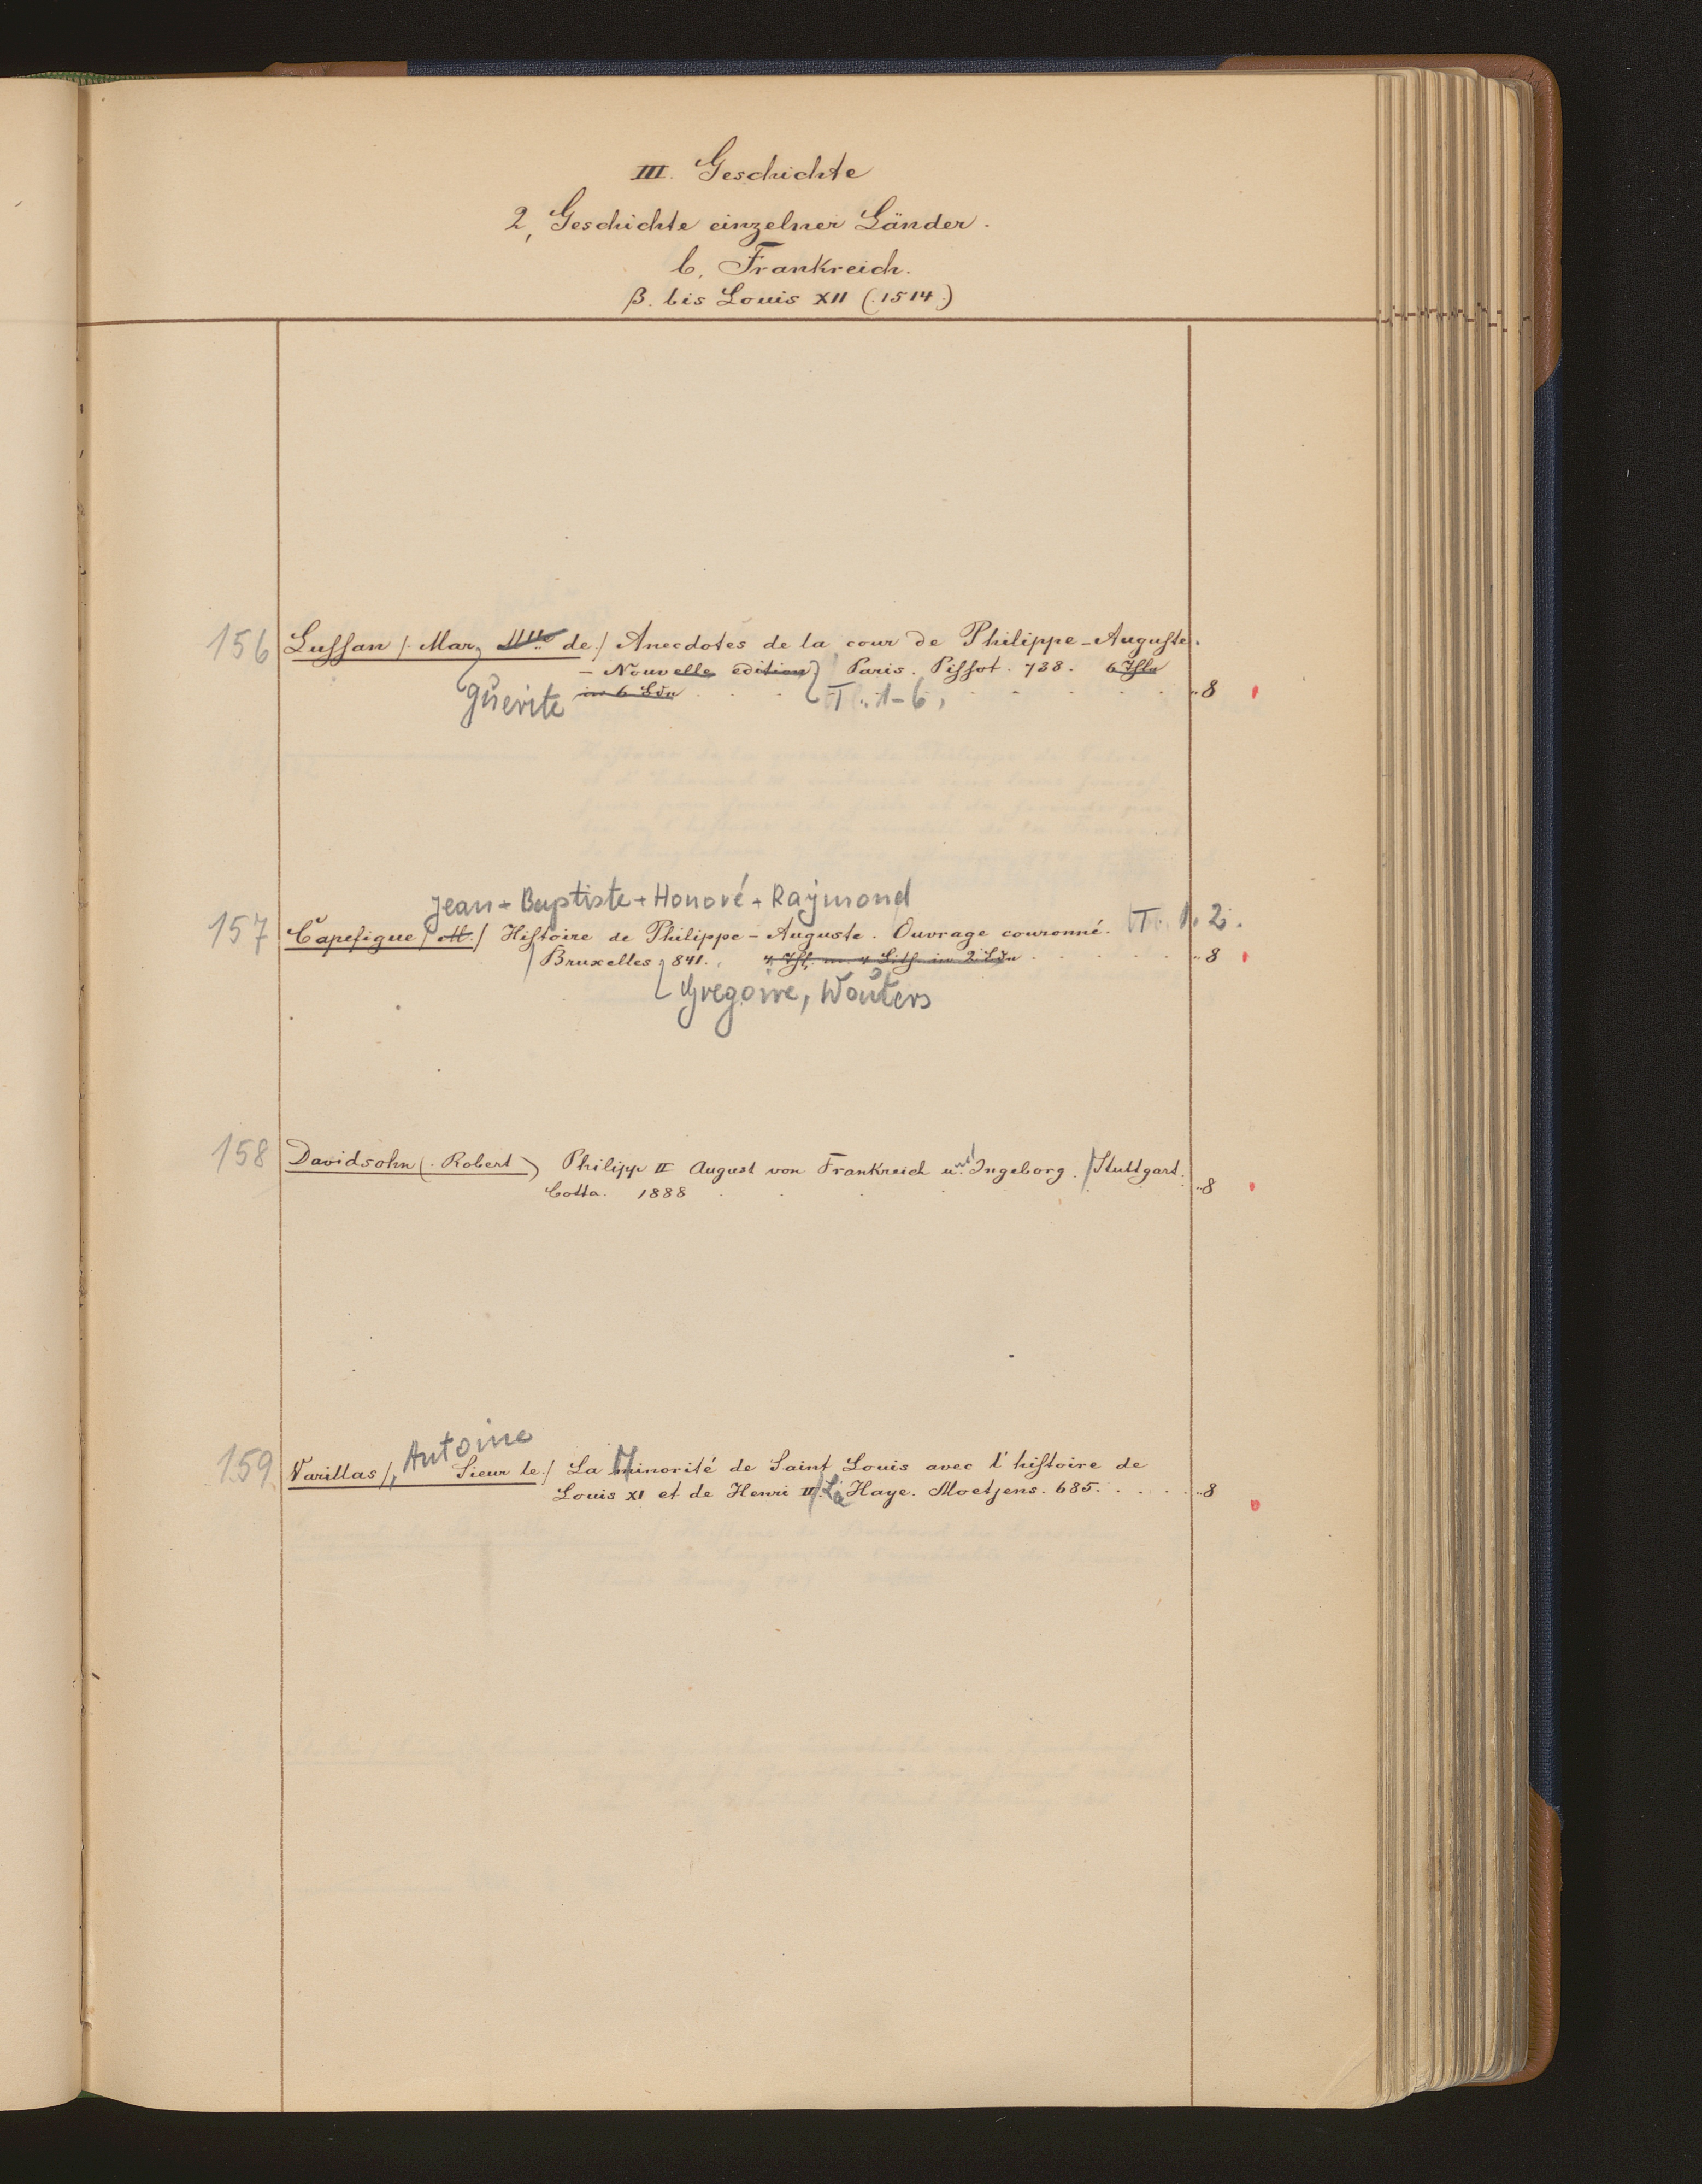 III. Geschichte
2, Geschichte einzelner Länder.
b, Frankreich.
β. bis Louis XII (.1514.)
156 Lussan /. Mar, Mlle de./ Anecdotes de la cour de Philippe-Auguste.
- Nouvelle édition Paris. Pissot. 738. 6 Thle
Guerite in 6 Bdn T. 1-6, 8
Jean-Baptiste-Honoré-Raymond
157 Capefigue /. M./ Histoire de Philippe-Auguste. Ouvrage couronné. T. 1. 2.
Bruxelles, 841. 4 Thl. m. 4 Lith. in 2 Bdn 8
Gregoire, Wouters
158 Davidsohn (. Robert) Philipp II August von Frankreich und Ingeborg. Stuttgart.
Cotta. 1888 8
Antoine
159 Varillas /, Sieur le./ La Minorité de Saint Louis avec l'histoire de
Louis XI et de Henri II. La Haye. Moetjens. 685. 8